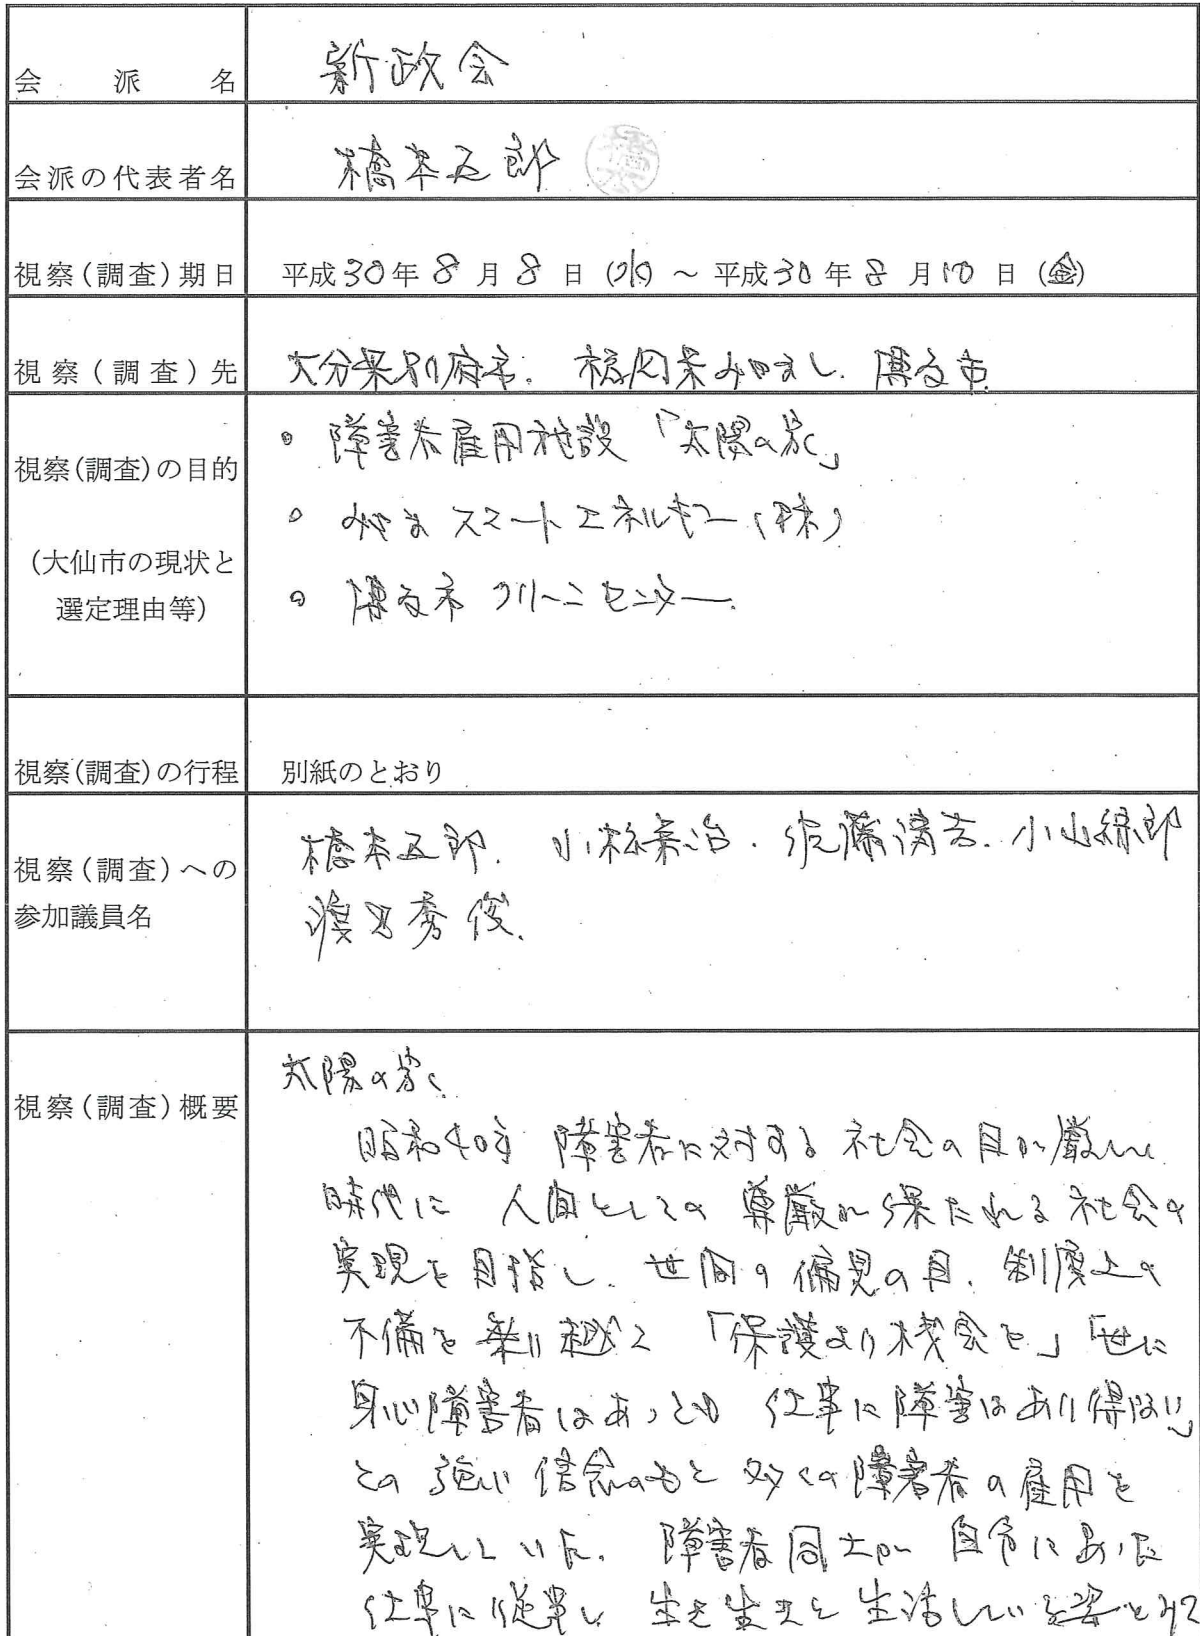 会派名 新政会
会派の代表者名 橋本五郎 橋本
視察(調査)期日 平成30年8月8日(水)～平成30年8月10日(金)
視察(調査)先 大分県別府市. 福岡県みやまし.
視察(調査)の目的
(大仙市の現状と
選定理由等)
。障害者雇用施設「太陽の家」
。みやまスマートエネルギー(株)
。市クリーンセンター.
視察(調査)の行程 別紙のとおり
視察(調査)への
参加議員名
橋本五郎. 小松栄治. 佐藤清吉. 小山緑郎
渡辺秀俊.
視察(調査)概要
太陽の家
昭和40年 障害者に対する社会の目が厳しい
時代に 人間としての尊厳が保たれる社会の
実現を目指し. 世間の偏見の目. 制度上の
不備を乗り越え「保護より機会を」「世に
身心障害者はあっても 仕事に障害はあり得ない」
との強い信念のもと 多くの障害者の雇用を
実現していた. 障害者同士が 自分にあった
仕事に従事し 生き生きと生活している姿をみて